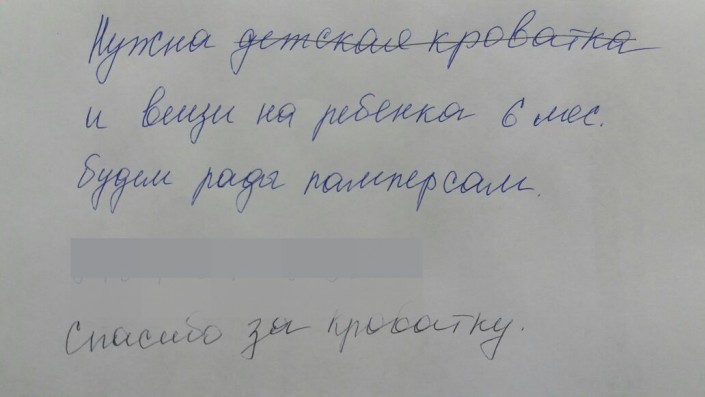 Нужна детская кроватка
и вещи на ребенка 6 мес.
будем рады памперсам.
Спасибо за кроватку.